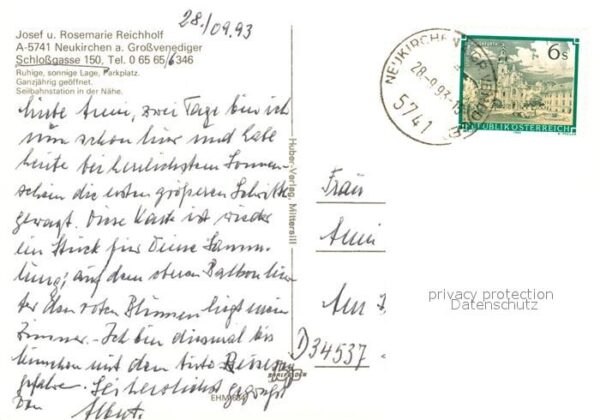 28./09.93
Josef u. Rosemarie Reichholf
A-5741 Neukirchen a. Großvenediger
Schloßgasse 150, Tel. 0 65 65/6346
Ruhige, sonnige Lage, Parkplatz.
Ganzjährig geöffnet.
Seilbahnstation in der Nähe.
Liebe Anni, zwei Tage bin ich
nun schon hier und habe
heute bei herrlichstem Sonnen-
schein die ersten größeren Schritte
gewagt. Diese Karte ist wieder
ein Stück für Deine Samm-
lung; auf dem oberen Balkon hin-
ter den roten Blumen liegt mein
Zimmer. - Ich bin diesmal bis
München mit dem Auto Reisezug
gefahren. Sei herzlichst gegrüßt
von Albert.
Huber-Verlag, Mittersill
EHM
NEUKIRCHEN
28.-9.93-
5741
6s
REPUBLIK ÖSTERREICH
Frau
Anni
Am
D 34537
privacy protection
Datenschutz